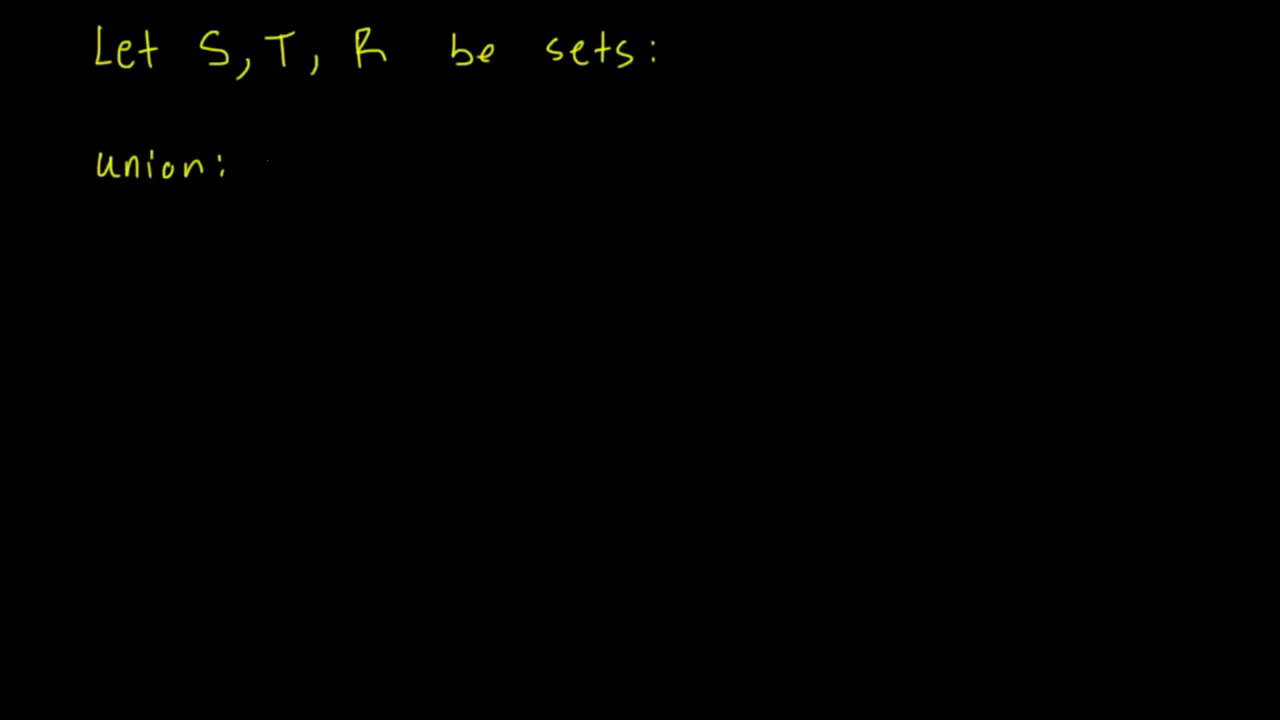 Let S, T, R be sets:
union: